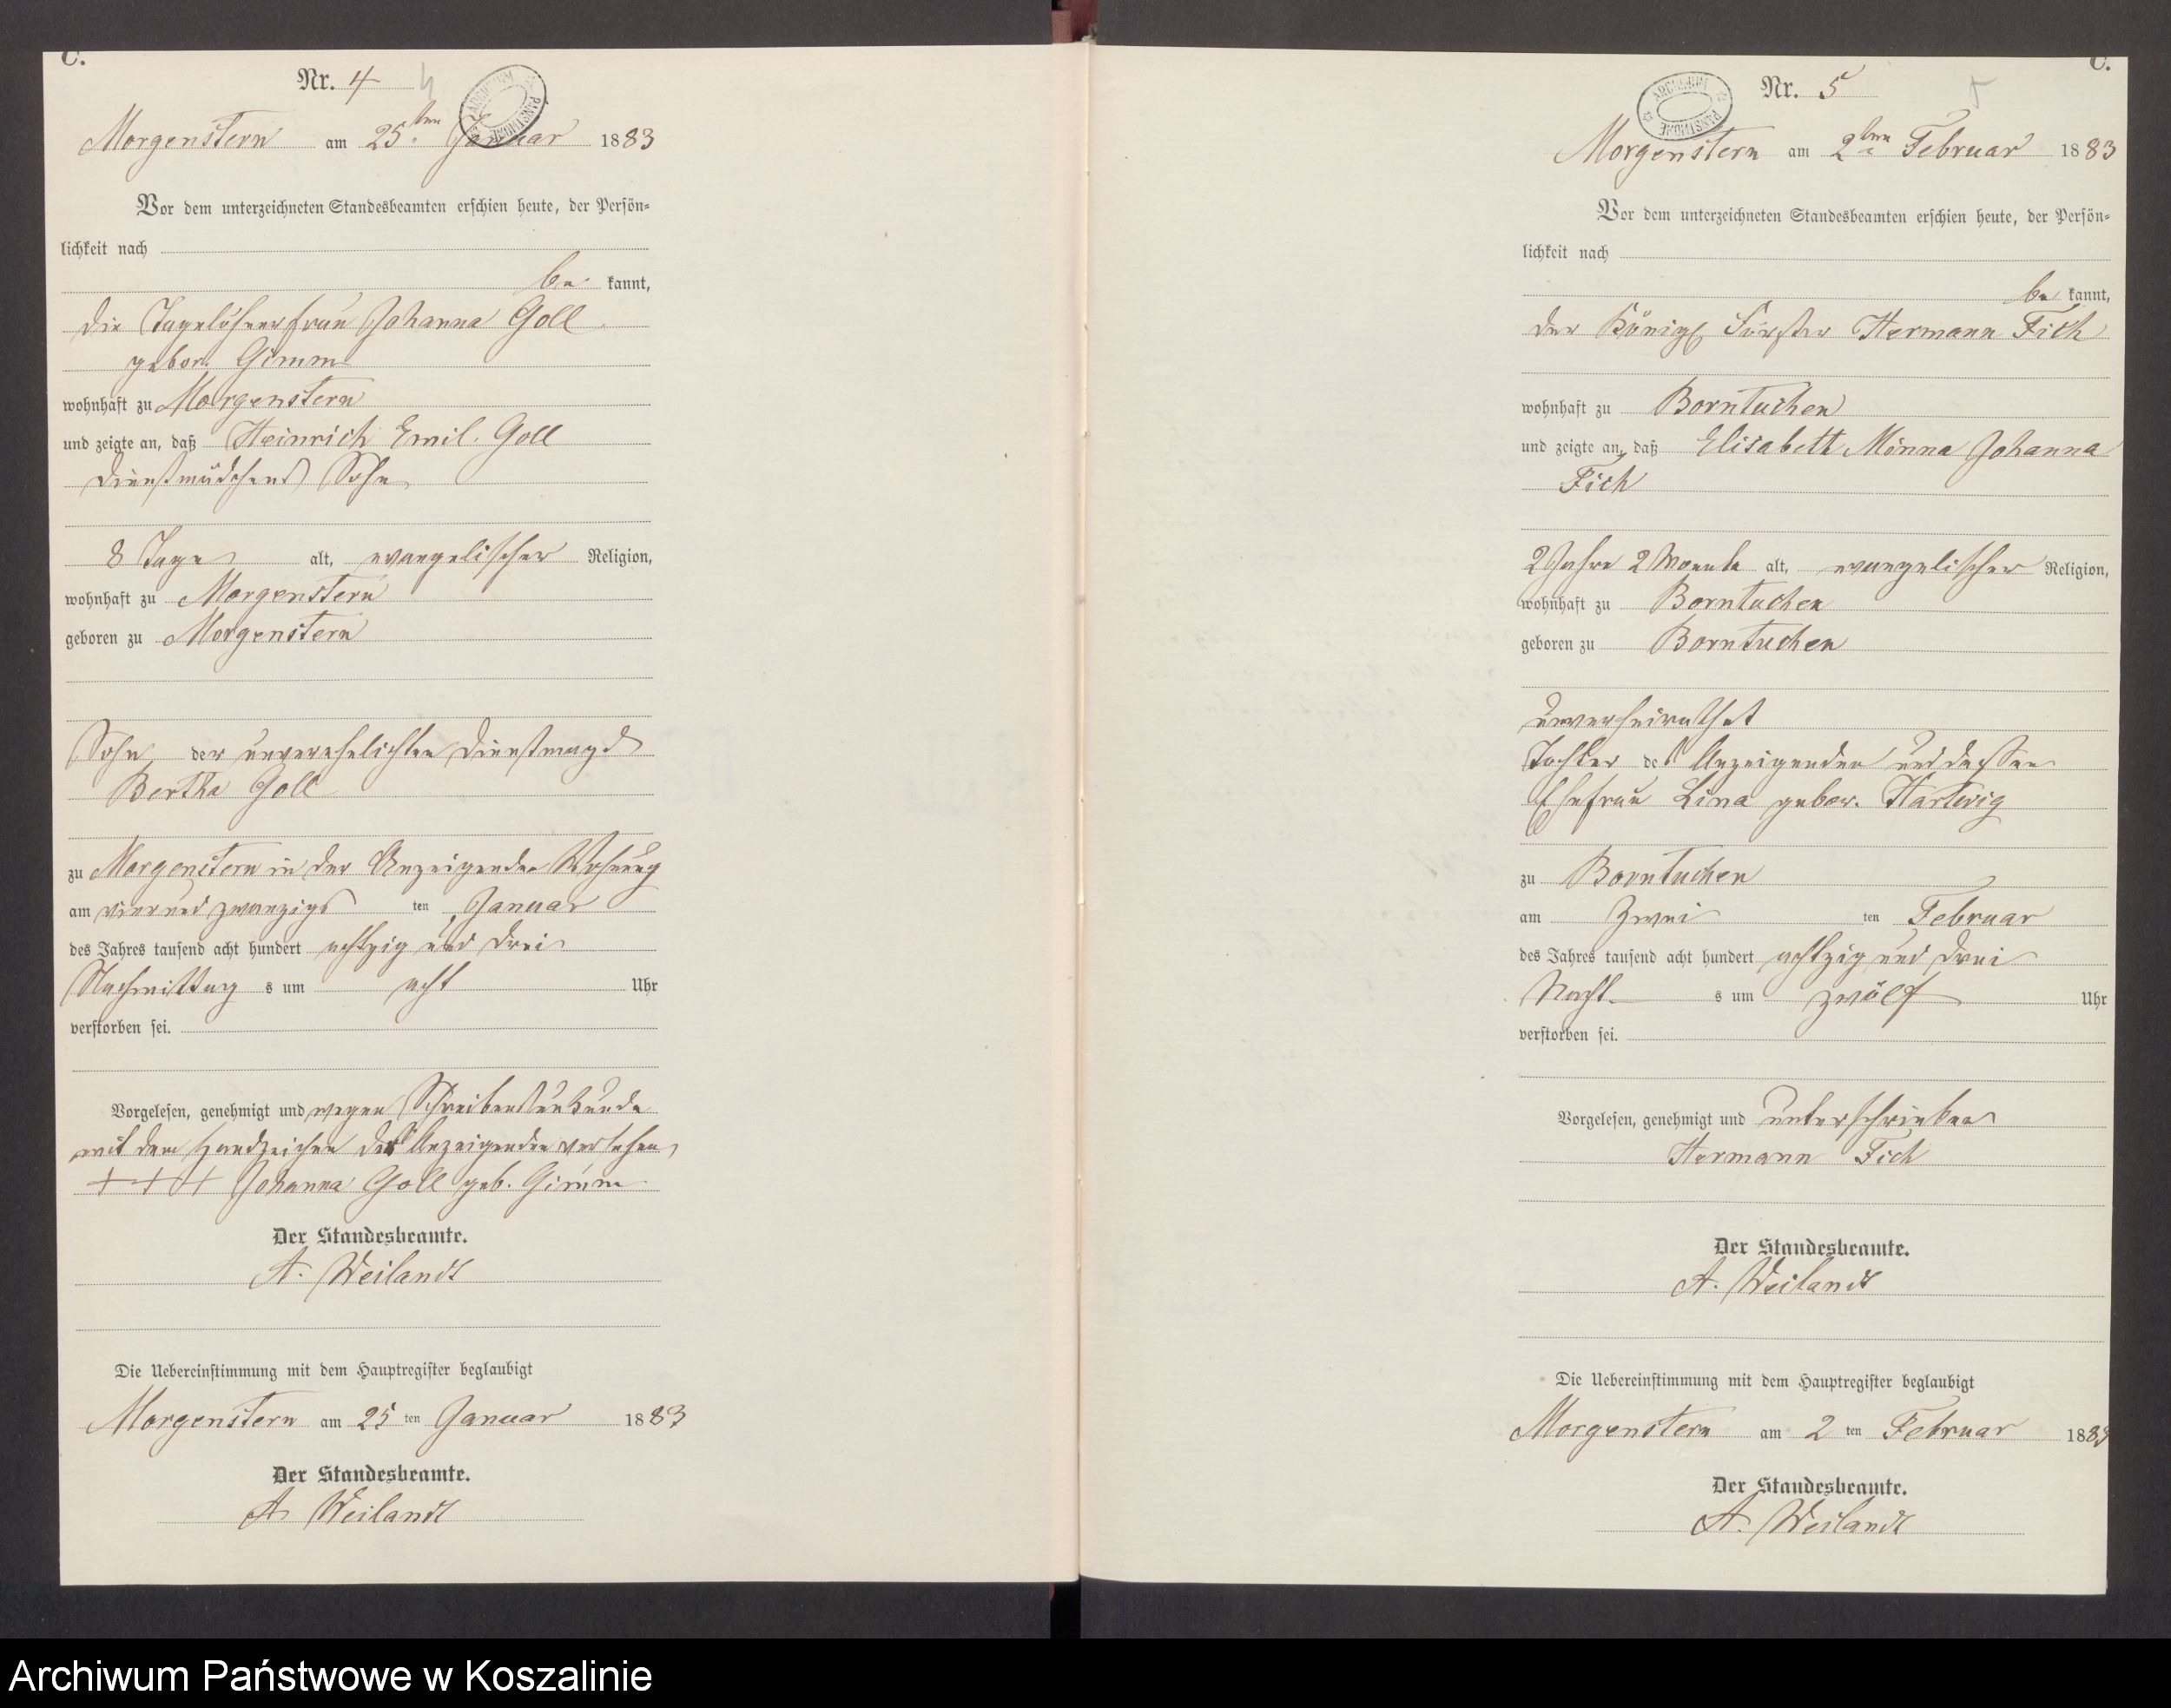 C.
Nr. 4 4
ARCHIWUM PAŃSTWOWE
Morgenstern am 25ten Januar 1883
Vor dem unterzeichneten Standesbeamten erschien heute, der Persön-
lichkeit nach
be kannt,
die Tagelöhnerfrau Johanna Goll
gebor. Gimm
wohnhaft zu Morgenstern
und zeigte an, daß Heinrich Emil Goll
Dienstmädchens Sohn
8 Tage alt, evangelischer Religion,
wohnhaft zu Morgenstern
geboren zu Morgenstern
Sohn der unverehelichten Dienstmagd
Bertha Goll
zu Morgenstern in der Anzeigenden Wohnung
am vier und zwanzigs ten Januar
des Jahres tausend acht hundert achtzig und drei
Nachmittag s um acht Uhr
verstorben sei.
Vorgelesen, genehmigt und wegen Schreibensunkunde
mit dem Handzeichen der Anzeigenden versehen
+ + + Johanna Goll geb. Gimm
Der Standesbeamte.
A. Weilandt
Die Uebereinstimmung mit dem Hauptregister beglaubigt
Morgenstern am 25 ten Januar 1883
Der Standesbeamte.
A. Weilandt
C.
Nr. 5 5
ARCHIWUM PAŃSTWOWE
Morgenstern am 2ten Februar 1883
Vor dem unterzeichneten Standesbeamten erschien heute, der Persön-
lichkeit nach
be kannt,
der Königl Förster Hermann Fich
wohnhaft zu Borntuchen
und zeigte an, daß Elisabeth Minna Johanna
Fich
2 Jahre 2 Monate alt, evangelischer Religion,
wohnhaft zu Borntuchen
geboren zu Borntuchen
unverheirathet
Tochter des Anzeigenden und dessen
Ehefrau Lina gebor. Hartwig
zu Borntuchen
am zwei ten Februar
des Jahres tausend acht hundert achtzig und drei
Nacht s um zwölf Uhr
verstorben sei.
Vorgelesen, genehmigt und unterschrieben
Hermann Fich
Der Standesbeamte.
A. Weilandt
Die Uebereinstimmung mit dem Hauptregister beglaubigt
Morgenstern am 2 ten Februar 1883
Der Standesbeamte.
A. Weilandt
Archiwum Państwowe w Koszalinie